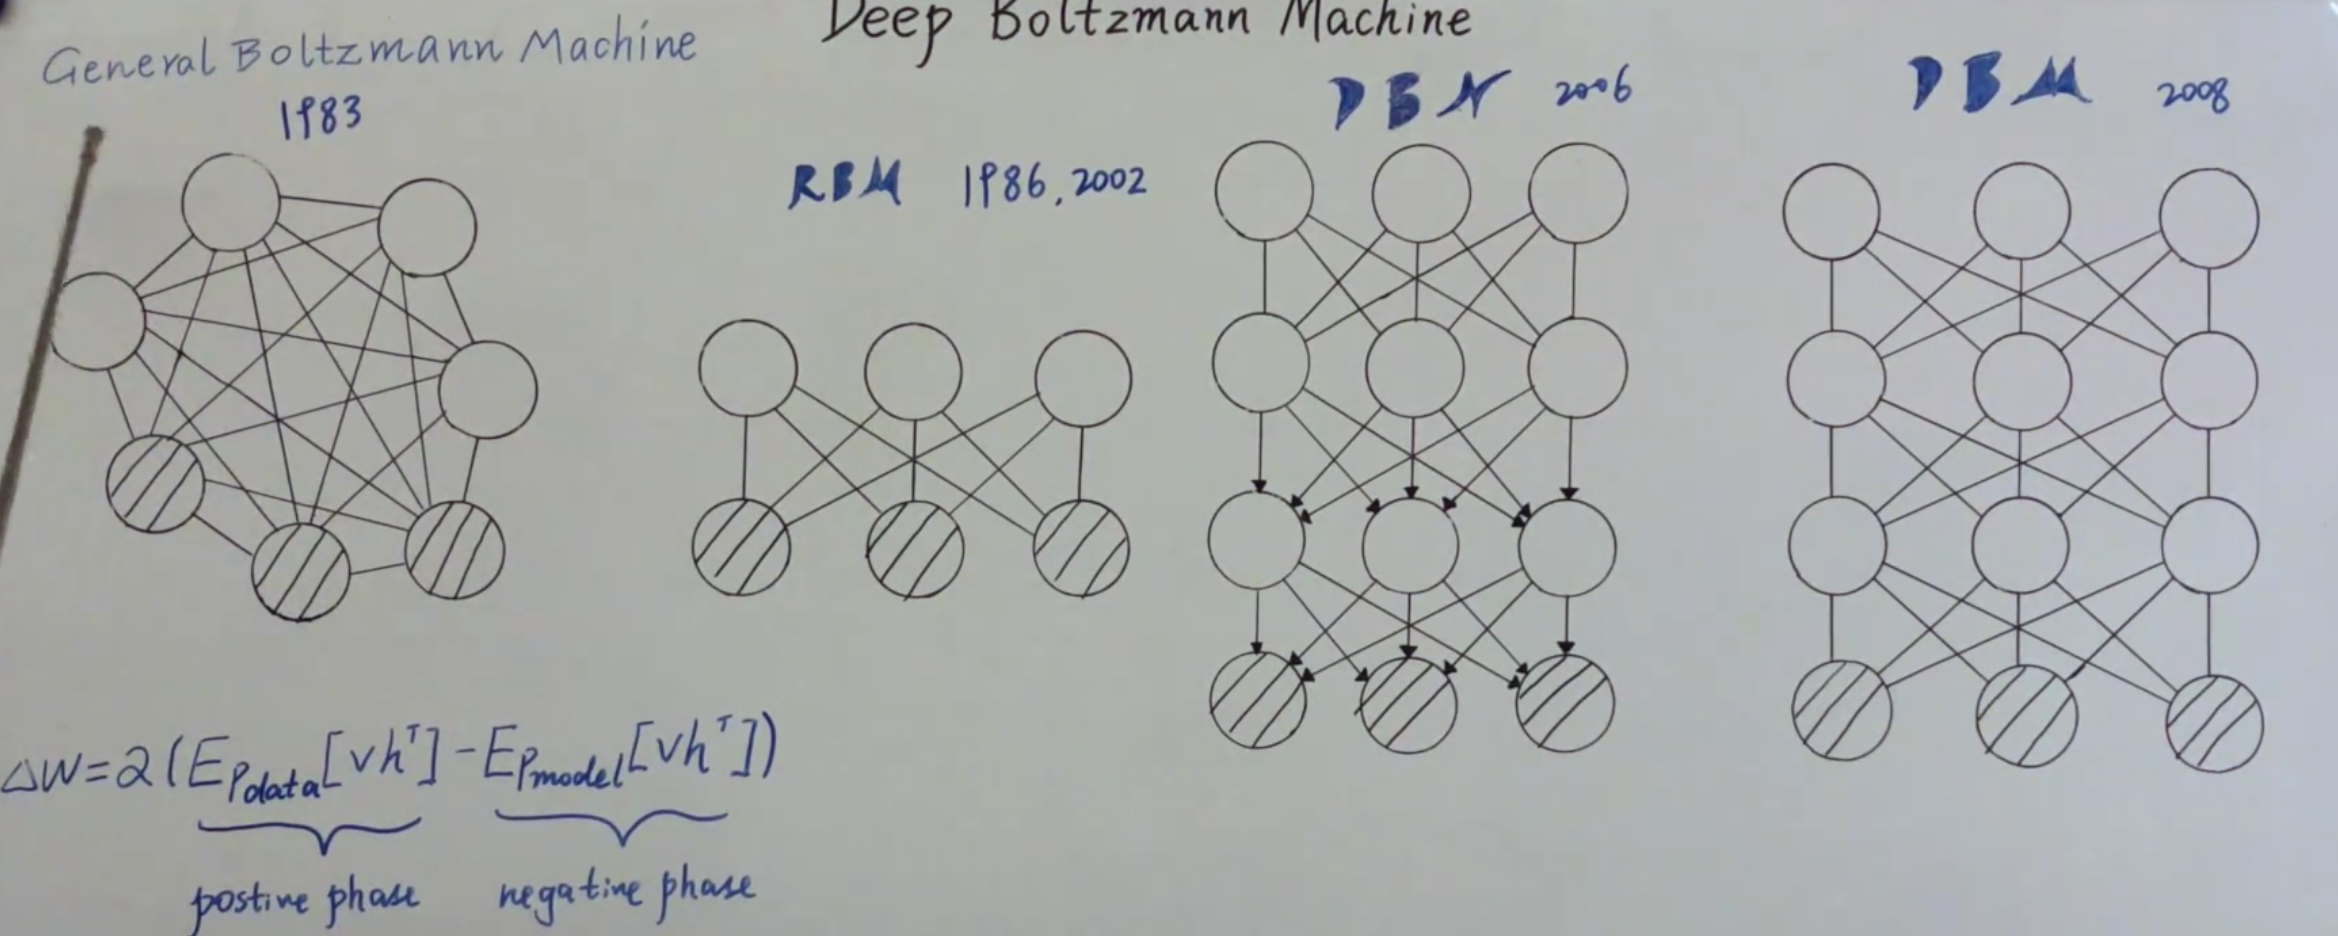 Deep Boltzmann Machine
General Boltzmann Machine
1983
RBM 1986, 2002
DBN 2006
DBM 2008
ΔW=α(E_Pdata[vhᵀ]-E_Pmodel[vhᵀ])
postive phase
negative phase